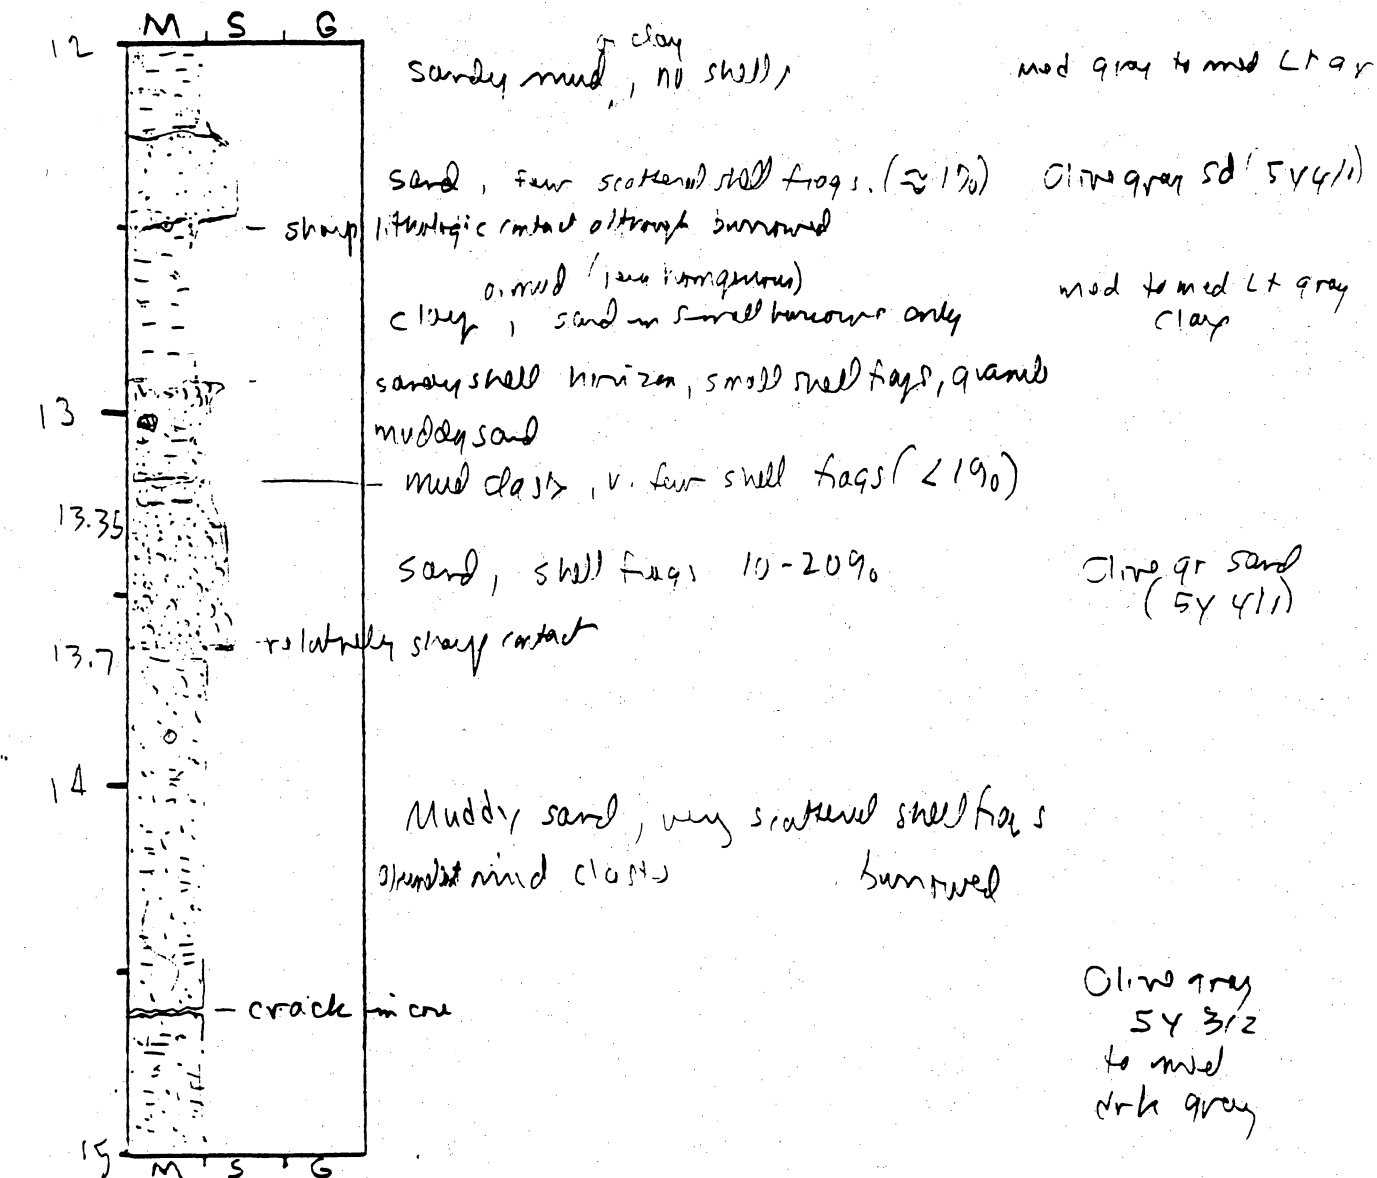 M S G
12
or clay
sandy mud, no shells
med gray to med Lt gr
sand, few scattered shell frags. (≈1%)
Olive gray sd (5Y4/1)
- sharp lithologic contact although burrowed
or mud (very homogenous)
clay, sand in small burrows only
med to med Lt gray
clay
sandy shell horizon, small shell frags,
13
muddy sand
mud clasts, v. few shell frags (<1%)
13.35
sand, shell frags 10-20%
Olive gr sand
(5Y 4/1)
- relatively sharp contact
13.7
14
Muddy sand, very scattered shell frags
abundant mud clasts
burrowed
Olive gray
5Y 3/2
to med
drk gray
- crack in core
15
M S G